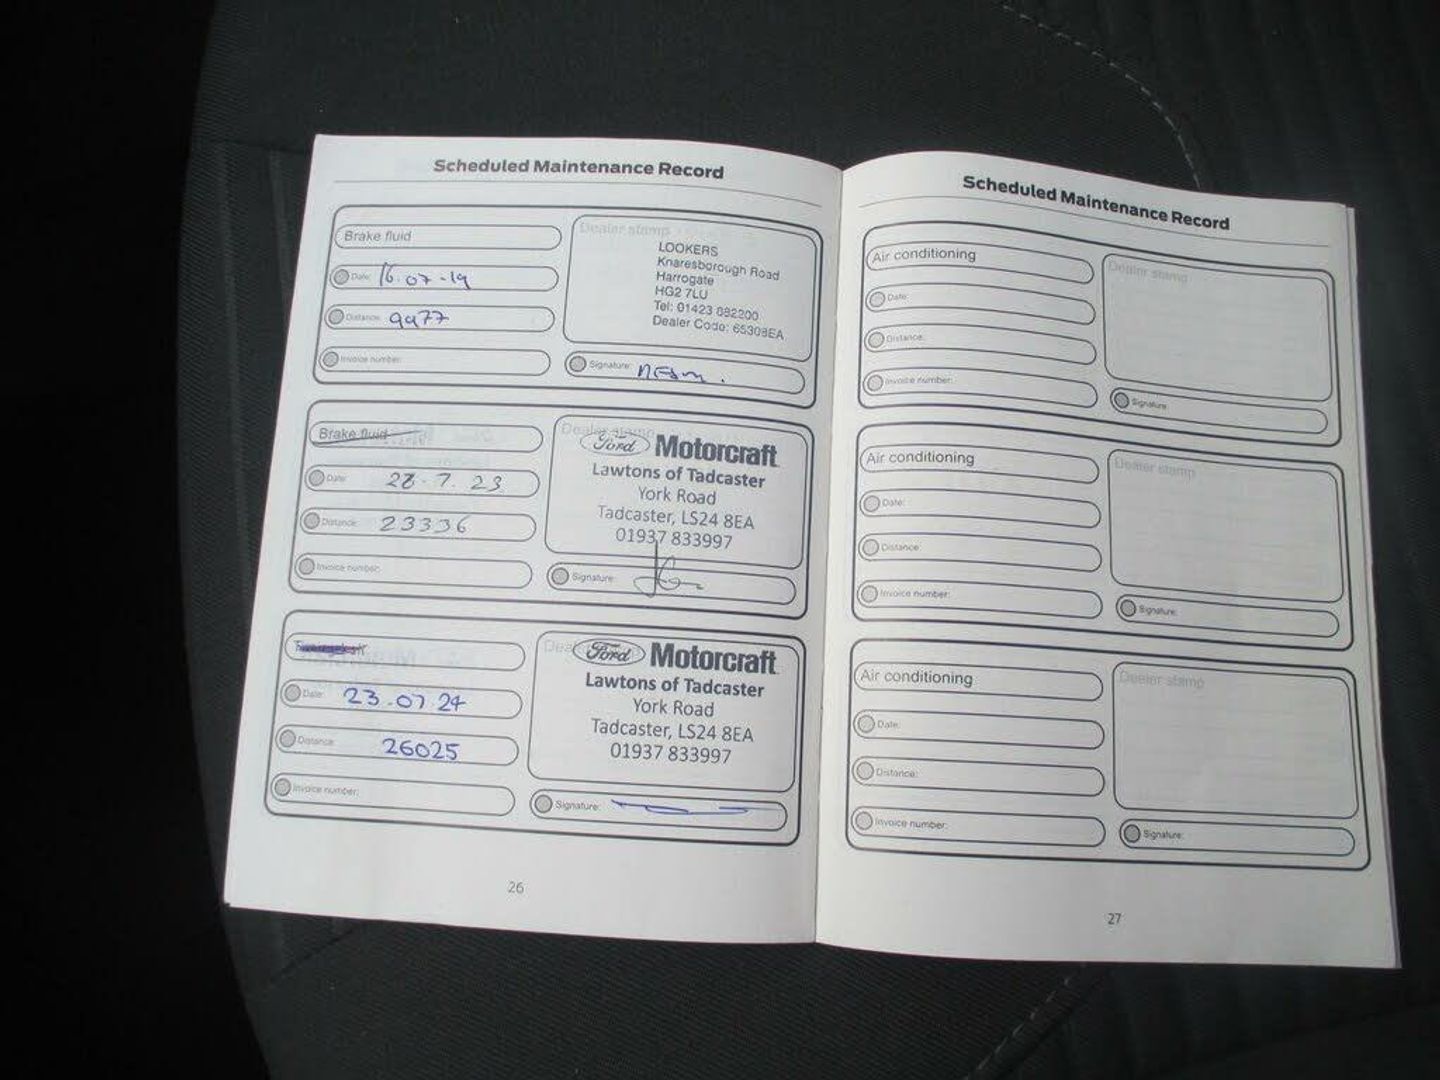 Scheduled Maintenance Record
Brake fluid
Date: 16.07-19
Distance: 9977
Invoice number:
Dealer stamp
LOOKERS
Knaresborough Road
Harrogate
HG2 7LU
Tel: 01423 082200
Dealer Code: 65308EA
Signature:
Brake fluid
Date:
7.23
Distance: 23336
Invoice number:
Dealer stamp
Ford Motorcraft
Lawtons of Tadcaster
York Road
Tadcaster, LS24 8EA
01937 833997
Signature:
Date: 23.07.24
Distance: 26025
Invoice number:
Ford Motorcraft
Lawtons of Tadcaster
York Road
Tadcaster, LS24 8EA
01937 833997
Signature:
26
Scheduled Maintenance Record
Air conditioning
Date:
Distance:
Invoice number:
Dealer stamp
Signature:
Air conditioning
Date:
Distance:
Invoice number:
Dealer stamp
Signature:
Air conditioning
Date:
Distance:
Invoice number:
Dealer stamp
Signature:
27